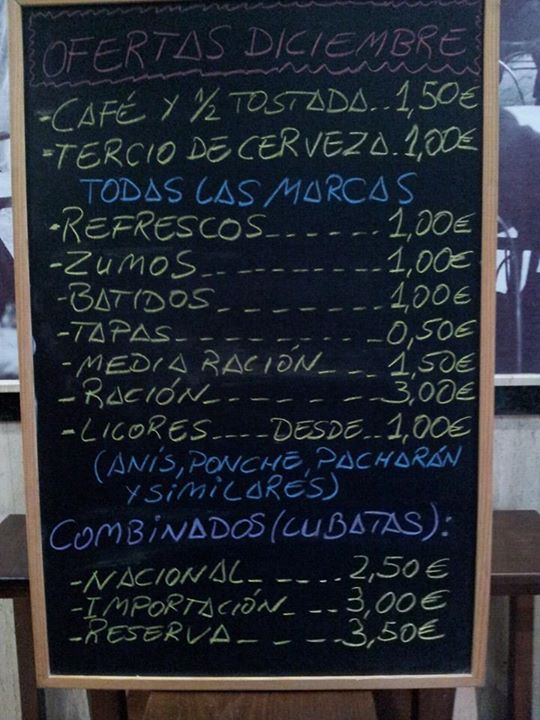 OFERTAS DICIEMBRE
-CAFÉ Y 1/2 TOSTADA..1,50€
-TERCIO DE CERVEZA..1,00€
TODAS LAS MARCAS
-REFRESCOS_______1,00€
-ZUMOS_________1,00€
-BATIDOS________1,00€
-TAPAS_________0,50€
-MEDIA RACIÓN___1,50€
-RACIÓN________3,00€
-LICORES....DESDE..1,00€
(ANÍS, PONCHE, PACHARÁN
Y SIMILARES)
COMBINADOS (CUBATAS):
-NACIONAL______2,50€
-IMPORTACIÓN____3,00€
-RESERVA______3,50€